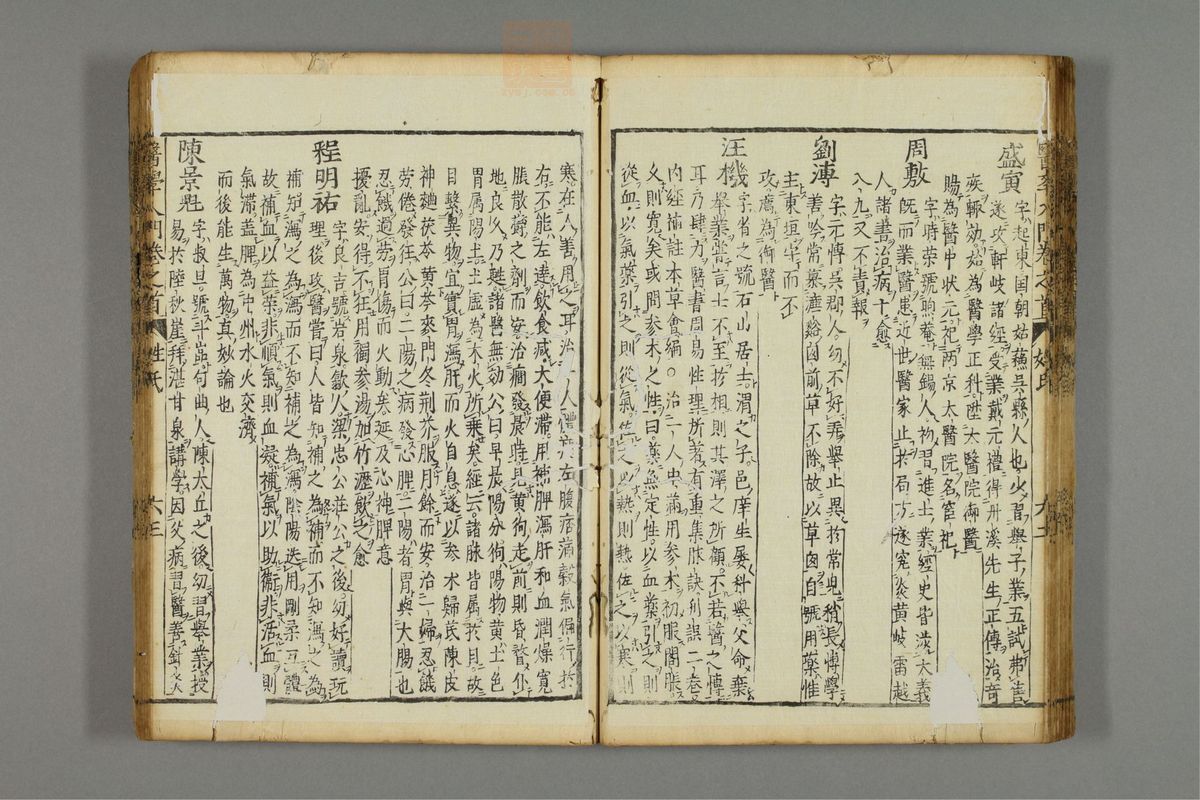 盛寅
字起東国朝姑蘓呉縣人也少習舉子業五試弗售
遂攻軒岐諸經受業戴元禮得丹溪先生正傳治奇
疾輒効始為醫學正科陞太醫院御醫
賜為醫中狀元祀兩京太醫院名宦祀
周敷
字時榮號煦菴無錫人初習進士業經史皆淡大義
既而業醫患近世醫家止於局方遂究炎黄岐雷越
人諸書治病十愈
八九又不責報
劉溥
字元愽呉郡人幼不好弄舉止異於常児稍長愽學
善吟常慕濂谿囪前草不除故以草囪自號用藥惟
主東垣而不
攻薦為御醫
汪機
字省之號石山居士渭之子邑庠生屡科舉父命棄
舉業嘗言士不至於相則其澤之所顧不若醫之愽
耳乃肆力醫書周易性理所著有重集脉訣刋誤二卷
内經補註本草會編○治一人患滿用参术初服悶脹
久則寛矣或問参术之性曰藥無定性以血藥引之則
從血以氣藥引之則從氣佐之以熱則熱佐之以寒則
寒在人善用之耳治一人體肥左腹痞滿穀氣偏行於
右不能左達飲食减大便滞用補脾瀉肝和血潤燥寛
脹散欝之劑而安治癎發晨時見黄狗走前則昏瞀仆
地良久乃甦諸醫無効公曰早晨陽分狗陽物黄土色
胃属陽土土虛為木火所乘矣經云諸脉皆属於目故
目擊異物宜實胃瀉肝而火自息遂以参术歸芪陳皮
神麯茯苓黄芩麥門冬荆芥服月餘而安治一婦忍饑
劳倦發狂公曰二陽之病發心脾二陽者胃與大腸也
忍饑過劳胃傷而火動矣延及心神脾意
擾亂安得不狂用獨参湯加竹瀝飲之愈
程明祐
字良吉號岩泉歙人梁忠公荘公之後幼好讀玩
理後攻醫嘗曰人皆知補之為補而不知瀉之為
補知瀉之為瀉而不知補之為瀉陰陽迭用剛柔互體
故補血以益榮非順氣則血凝補氣以助衛非活血則
氣滯盖脾為中州水火交濟
而後能生萬物真妙論也
陳景魁
字叔旦號斗嵓句曲人陳大丘之後幼習舉業授
易於陸秋崖拜湛甘泉講學因父病習醫善針灸
醫學入門卷之首 姓氏 六三